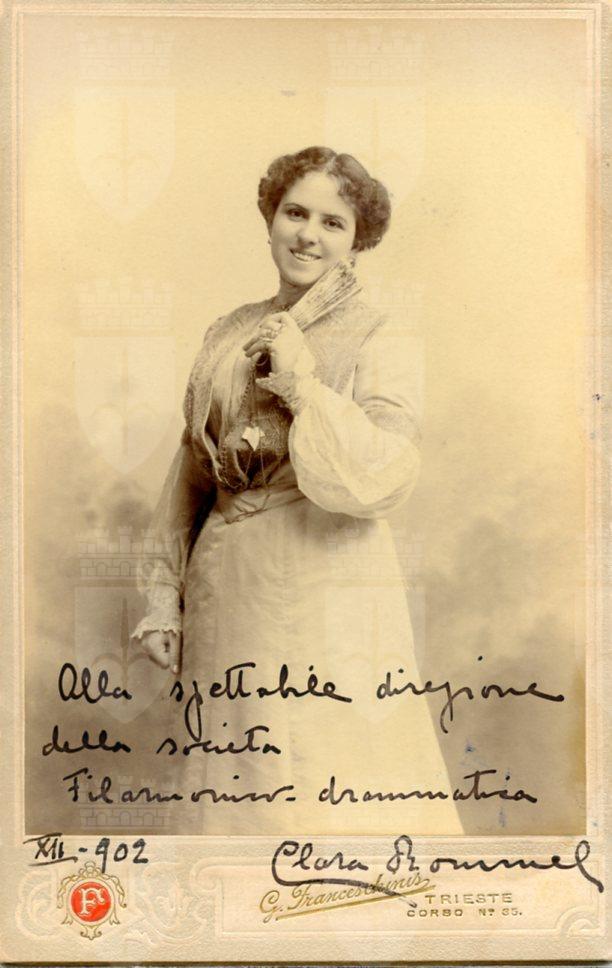 Alla spettabile direzione
della società
Filarmonico-drammatica
XII-902
Clara Rommel
F
G. Franceschinis
TRIESTE
CORSO Nº 35.